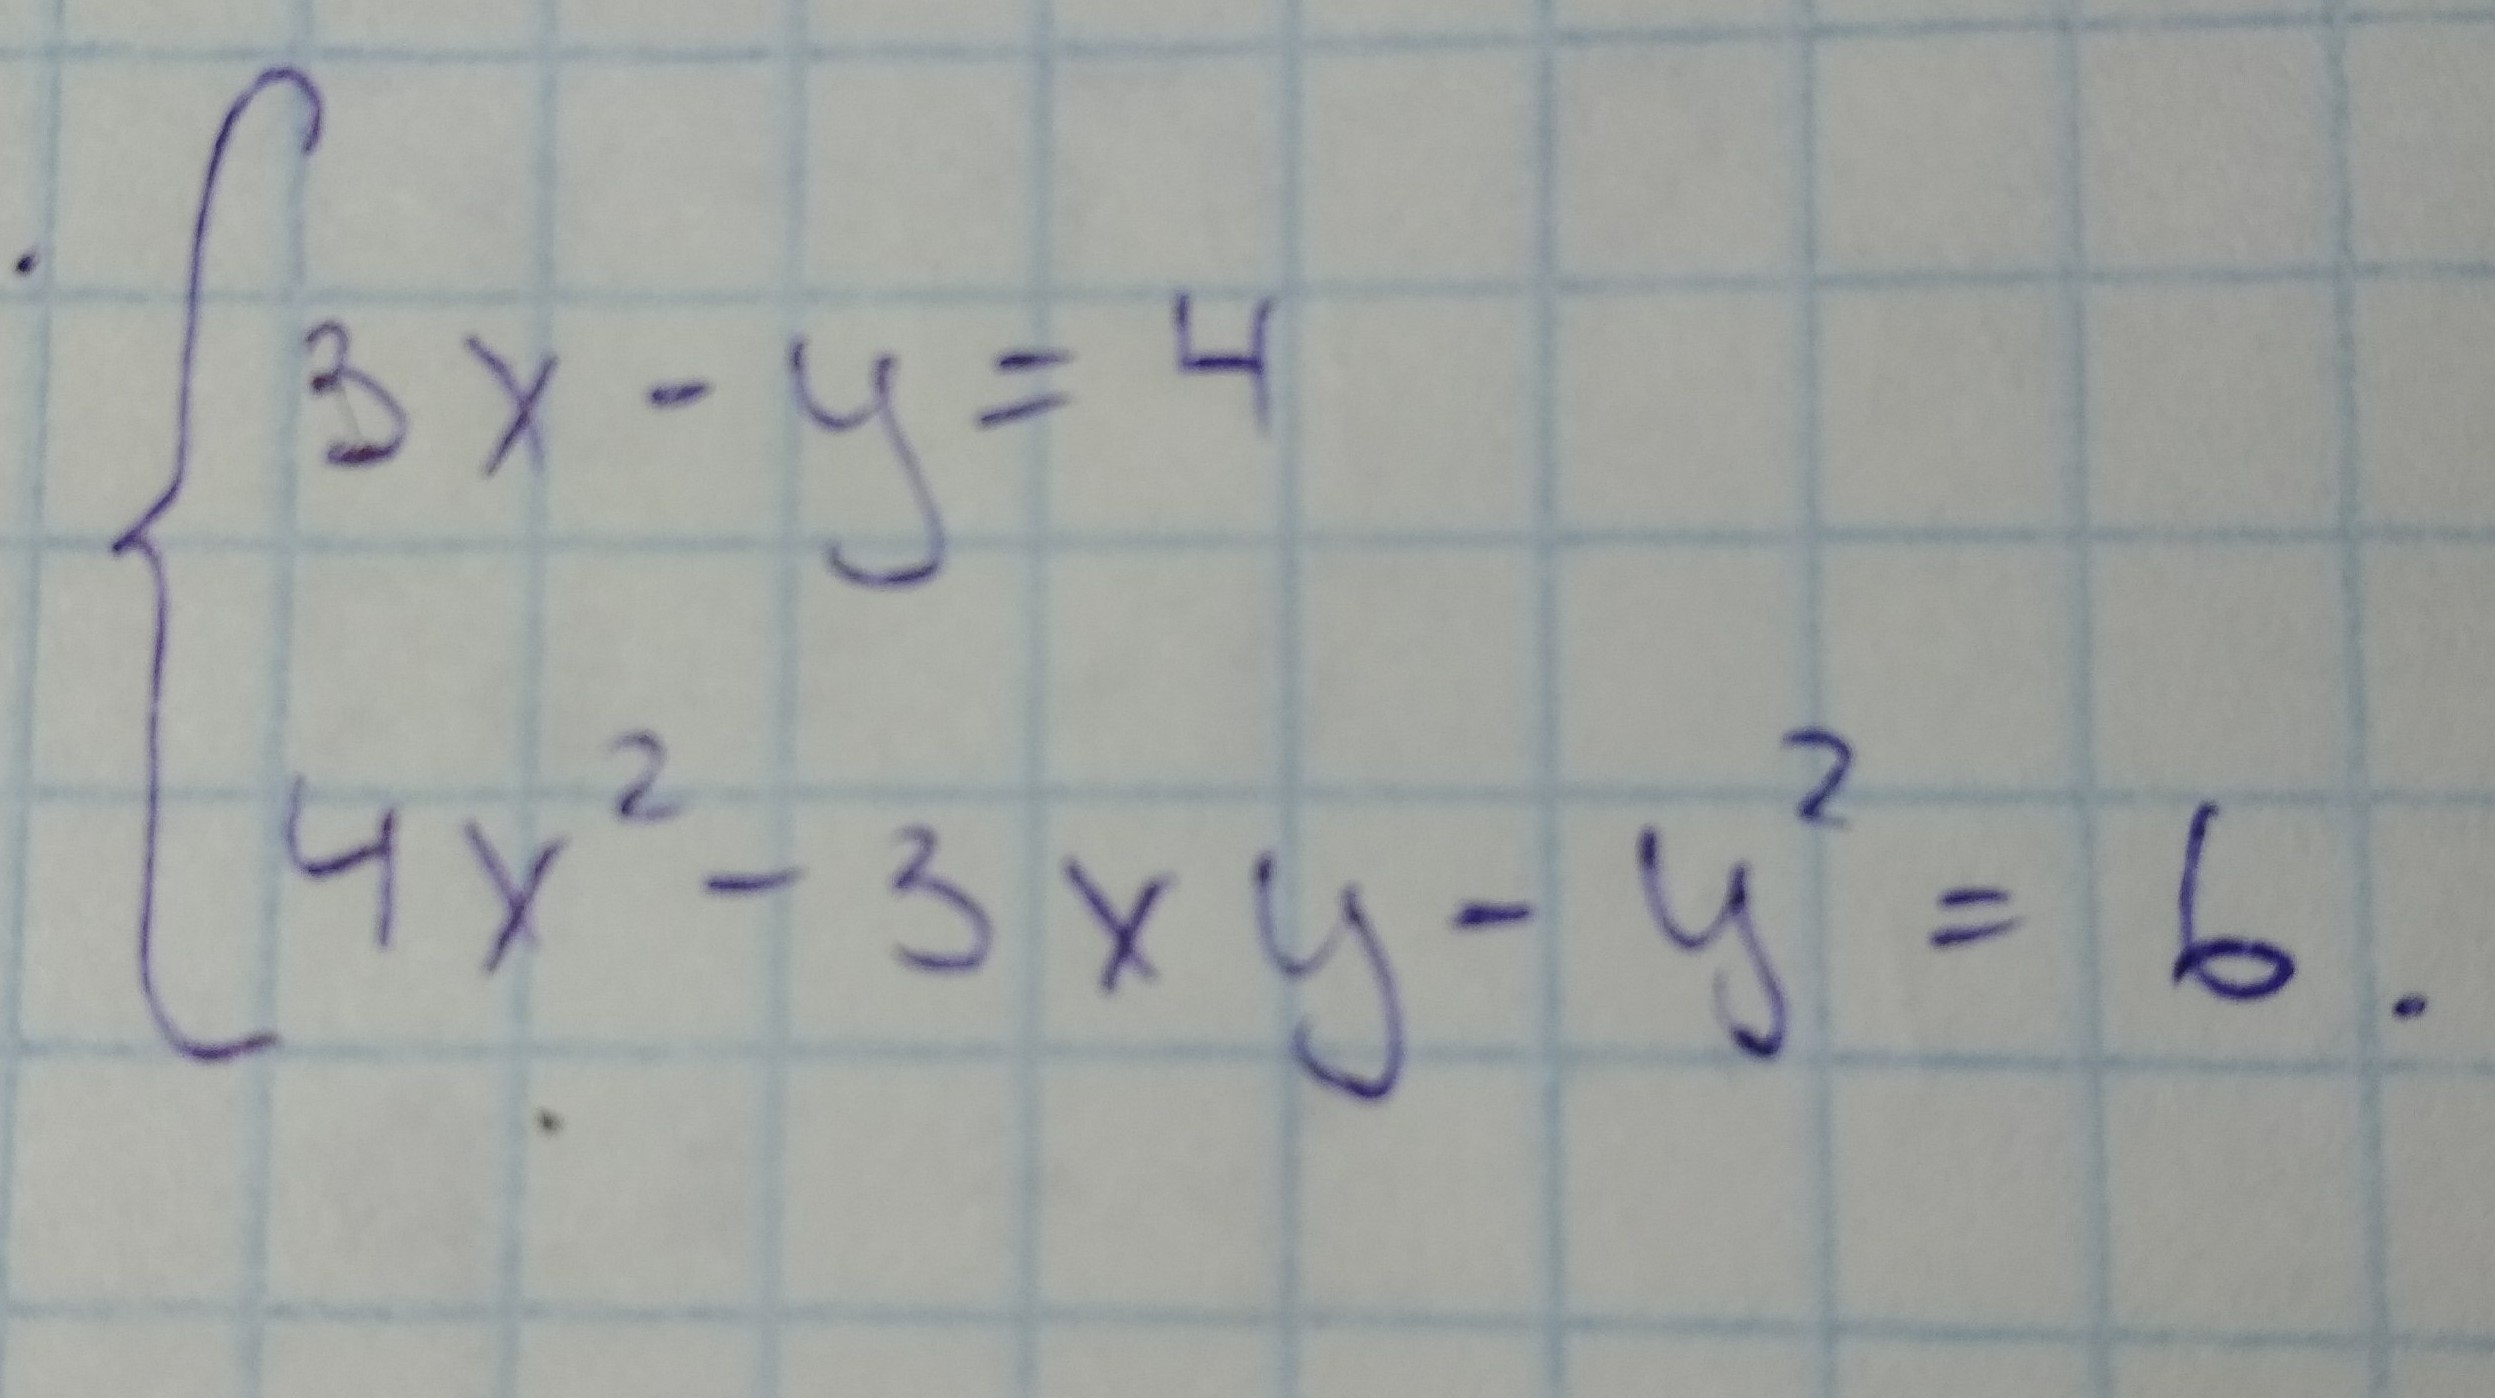 3x - y = 4
4x² - 3xy - y² = 6.